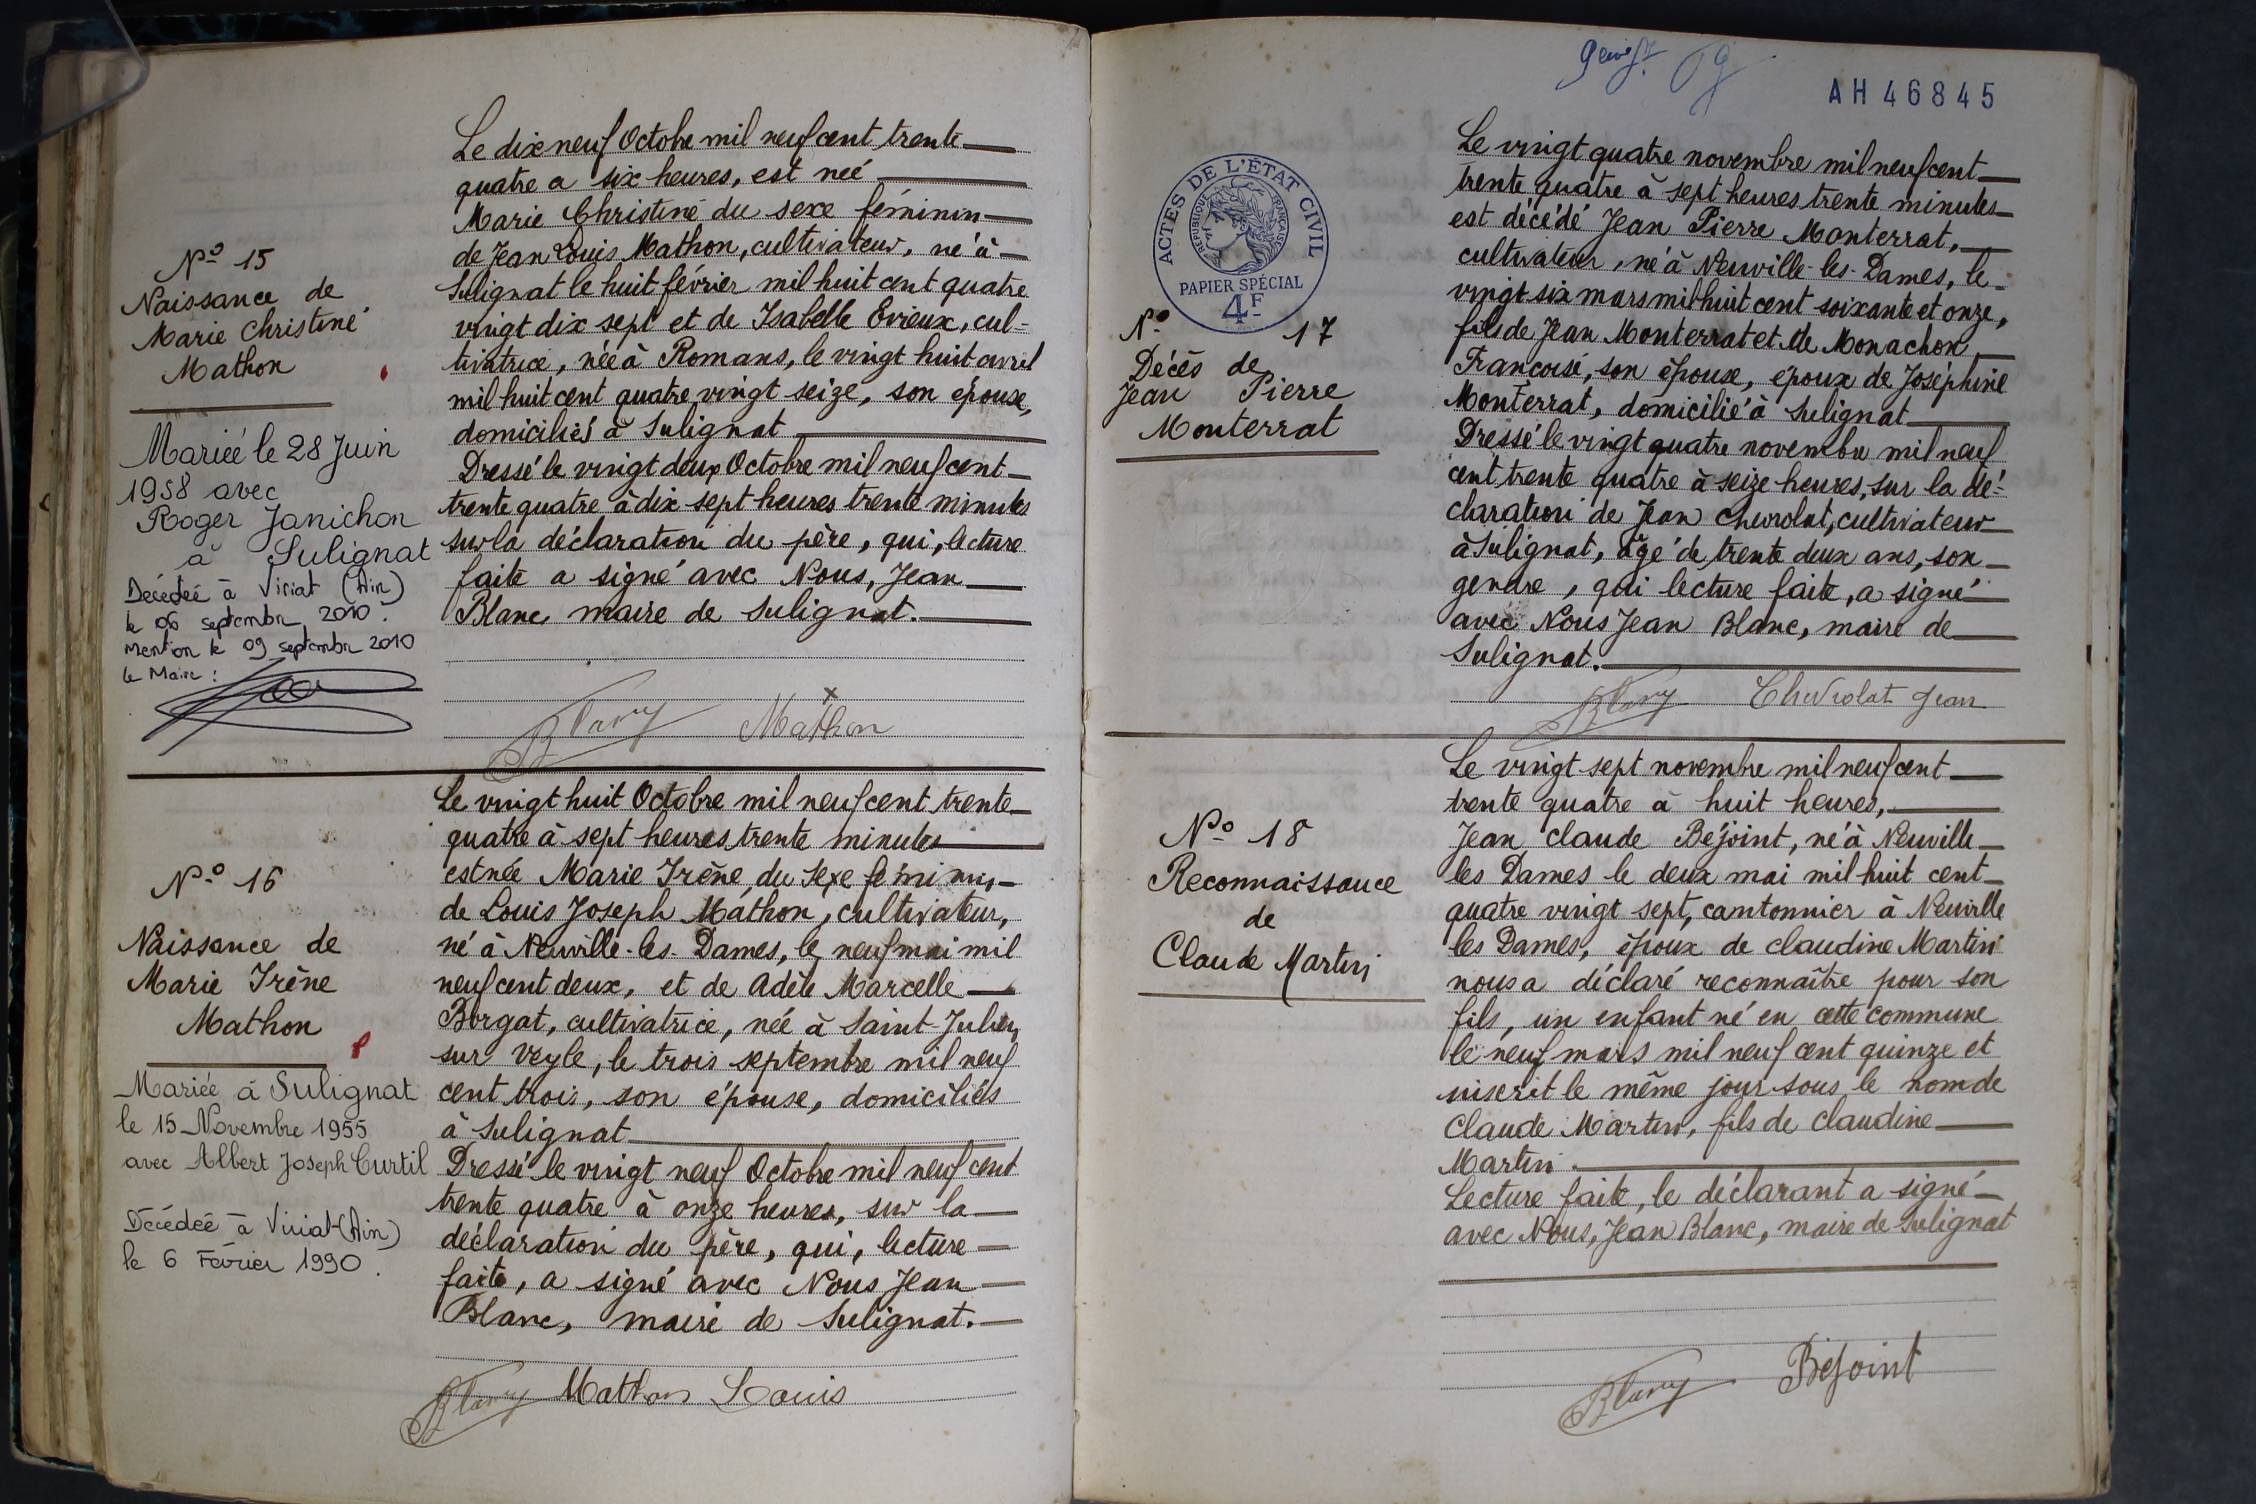 N° 15
Naissance de
Marie Christine
Mathon
Mariée le 28 Juin
1958 avec
Roger Janichon
à Sulignat
Décédée à Viriat (Ain)
le 06 septembre 2010.
Mention le 09 septembre 2010
le Maire :
Le dix neuf Octobre mil neuf cent trente
quatre a six heures, est neé
Marie Christine du sexe féminin
de Jean Louis Mathon, cultivateur, né à
Sulignat le huit février mil huit cent quatre
vingt dix sept et de Isabelle Evieux, cul-
tivatrice, née à Romans, le vingt huit avril
mil huit cent quatre vingt seize, son épouse,
domiciliés à Sulignat
Dressé le vingt deux Octobre mil neuf cent
trente quatre à dix sept heures trente minutes
sur la déclaration du père, qui, lecture
faite a signé avec Nous, Jean
Blanc, maire de Sulignat.
Blanc Mathon
N° 16
Naissance de
Marie Irène
Mathon
Mariée à Sulignat
le 15 Novembre 1955
avec Albert Joseph Curtil
Décédeé à Viriat (Ain)
le 6 Février 1990.
Le vingt huit Octobre mil neuf cent trente
quatre à sept heures trente minutes
est née Marie Irène, du sexe féminin,
de Louis Joseph Mathon, cultivateur,
né à Neuville-les-Dames, le neuf mai mil
neuf cent deux, et de Adèle Marcelle
Borgat, cultivatrice, née à Saint-Julien
sur Veyle, le trois septembre mil neuf
cent trois, son épouse, domiciliés
à Sulignat
Dressé le vingt neuf Octobre mil neuf cent
trente quatre à onze heures, sur la
déclaration du père, qui, lecture
faite, a signé avec Nous Jean
Blanc, maire de Sulignat.
Blanc Mathon Louis
AH 46845
ACTES DE L'ÉTAT CIVIL
RÉPUBLIQUE FRANÇAISE
PAPIER SPÉCIAL
4F
N° 17
Décès de
Jean Pierre
Monterrat
Le vingt quatre novembre mil neuf cent
trente quatre à sept heures trente minutes
est décédé Jean Pierre Monterrat,
cultivateur, né à Neuville-les-Dames, le
vingt six mars mil huit cent soixante et onze,
fils de Jean Monterrat et de Monachon
Françoise, son épouse, époux de Joséphine
Monterrat, domicilié à Sulignat
Dressé le vingt quatre novembre mil neuf
cent trente quatre à seize heures, sur la dé-
claration de Jean Chevrolat, cultivateur
à Sulignat, âgé de trente deux ans, son
gendre, qui lecture faite, a signé
avec Nous Jean Blanc, maire de
Sulignat.
Blanc Chevrolat Jean
N° 18
Reconnaissance
de
Claude Martin
Le vingt sept novembre mil neuf cent
trente quatre à huit heures,
Jean Claude Béjoint, né à Neuville
les Dames le deux mai mil huit cent
quatre vingt sept, cantonnier à Neuville
les Dames, époux de Claudine Martin
nous a déclaré reconnaître pour son
fils, un enfant né en cette commune
le neuf mars mil neuf cent quinze et
inscrit le même jour sous le nom de
Claude Martin, fils de Claudine
Martin.
Lecture faite, le déclarant a signé
avec Nous, Jean Blanc, maire de Sulignat
Blanc Béjoint